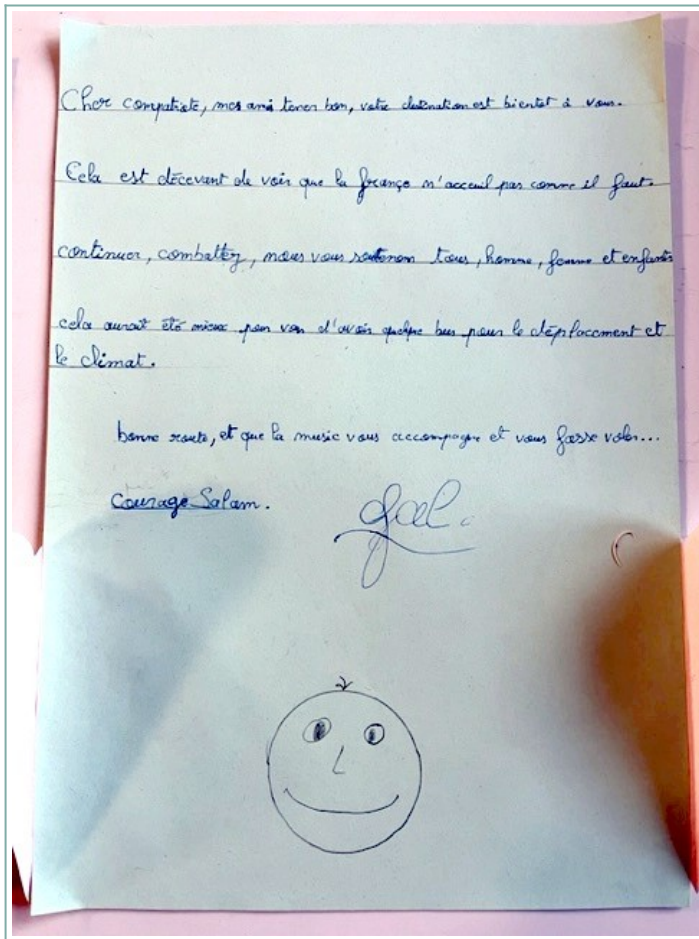 Cher compatriote, mes ami tener bon, votre destination est bientot à vous.
Cela est décevant de voir que la françe n'acceuil pas comme il faut.
continuer, combattez, nous vous soutenons tous, homme, femme et enfants
cela aurait été mieux pour vous d'avoir quelque bus pour le déplacement et
le climat.
bonne route, et que la music vous accompagne et vous fasse voler...
Courage Salam.